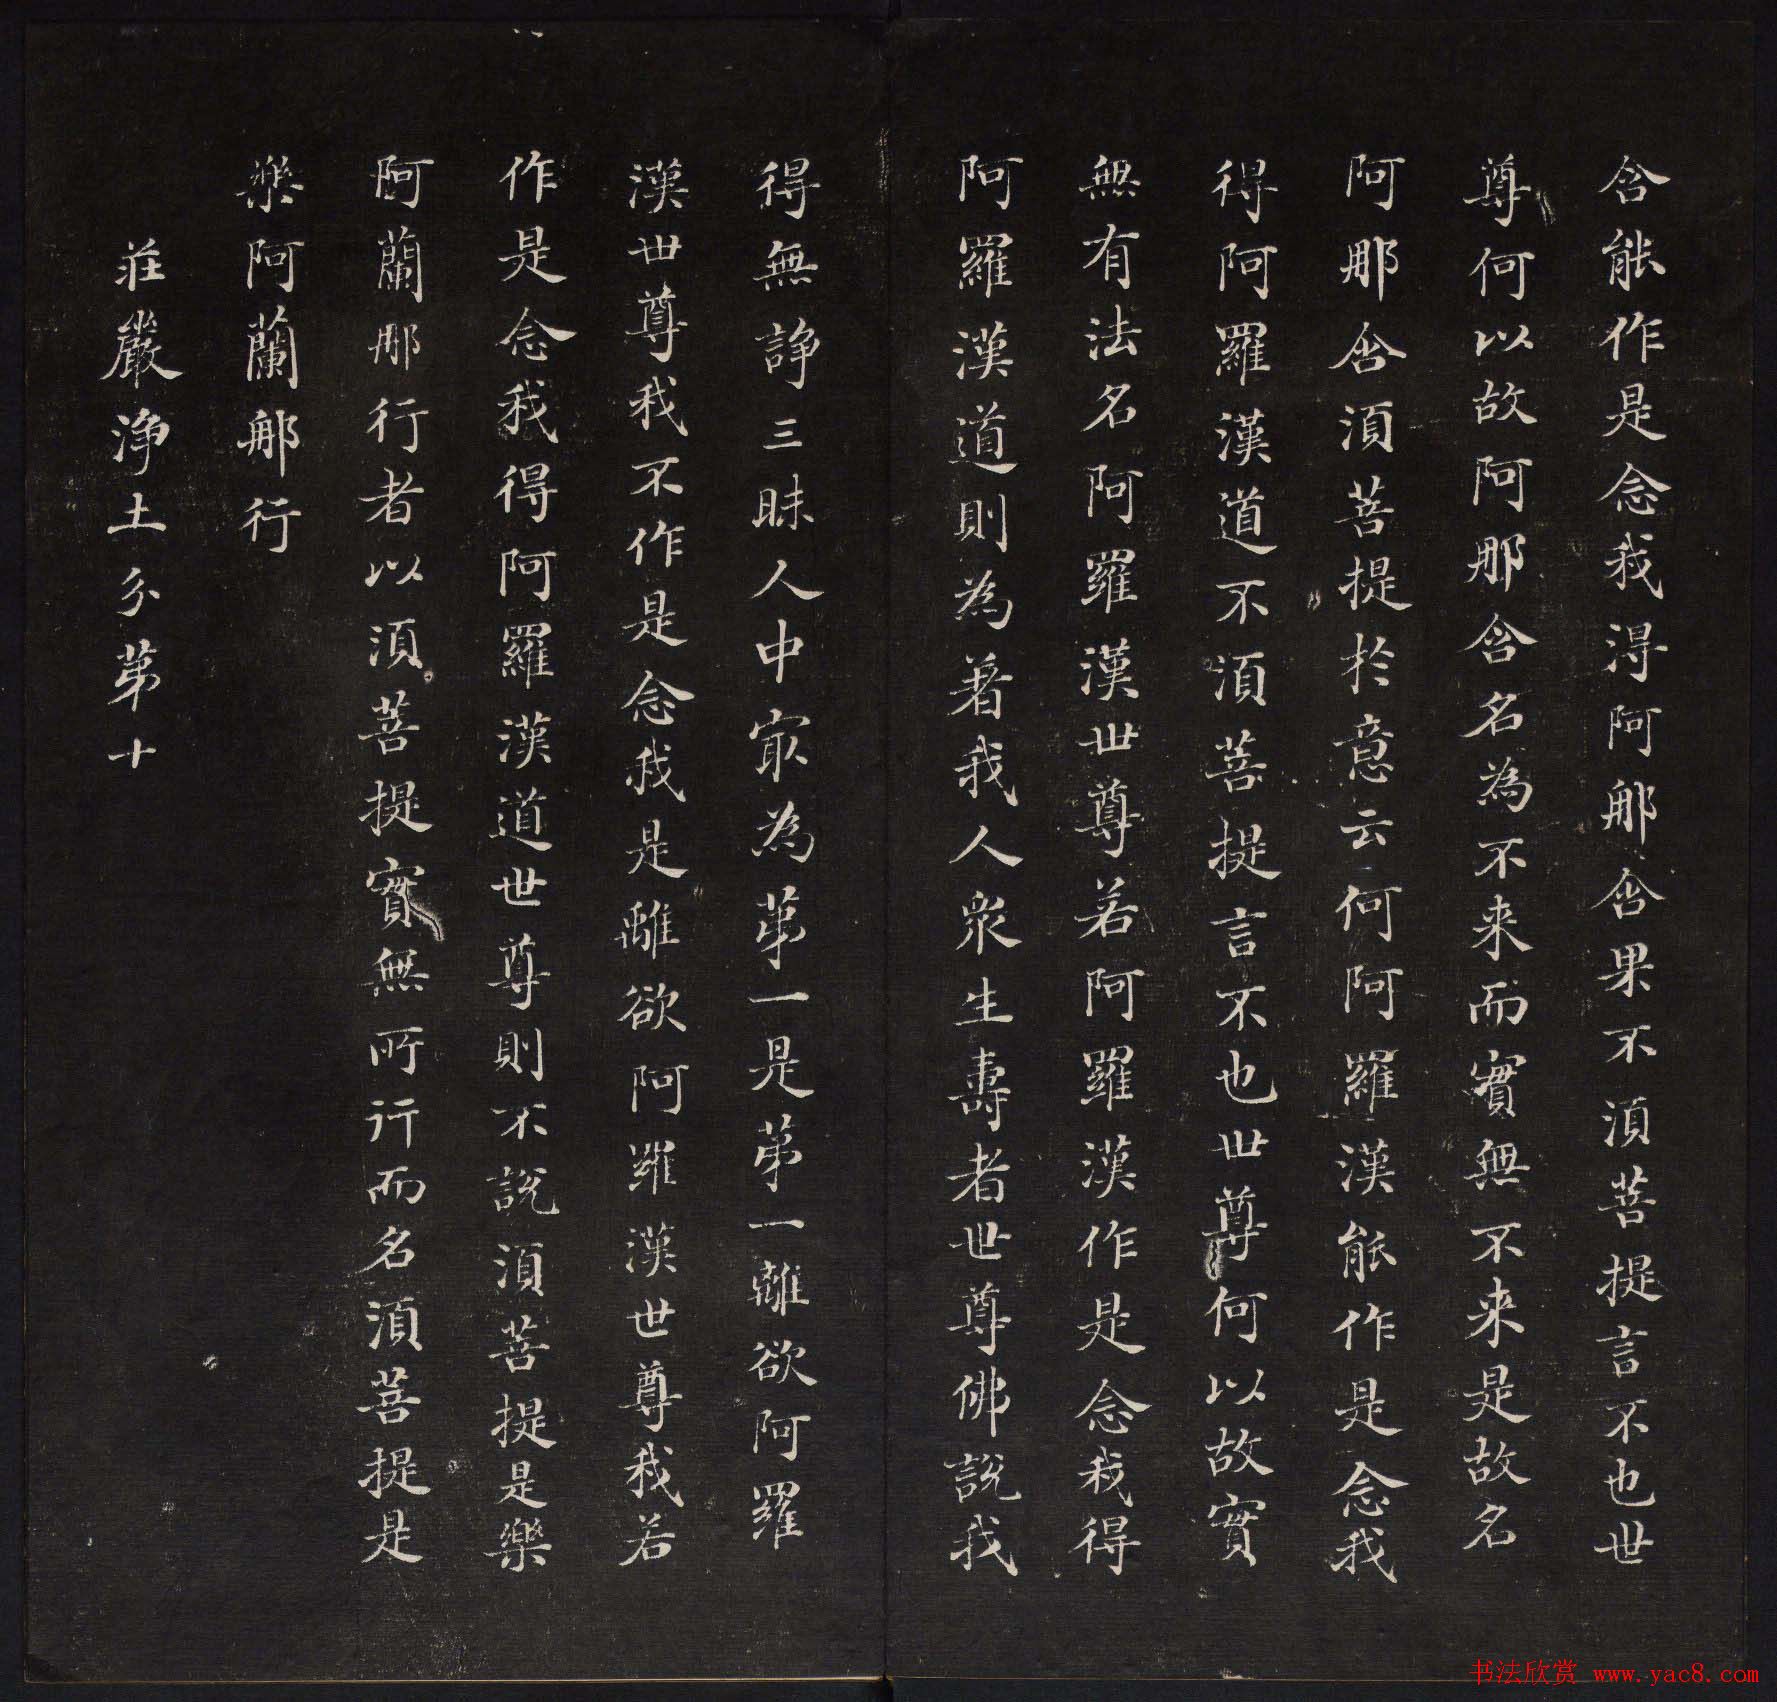 含能作是念我得阿那含果不須菩提言不也世
尊何以故阿那含名為不来而實無不来是故名
阿那含須菩提於意云何阿羅漢能作是念我
得阿羅漢道不須菩提言不也世尊何以故實
無有法名阿羅漢世尊若阿羅漢作是念我得
阿羅漢道則為著我人衆生壽者世尊佛說我
得無諍三昧人中㝡為苐一是苐一離欲阿羅
漢世尊我不作是念我是離欲阿羅漢世尊我若
作是念我得阿羅漢道世尊則不說須菩提是樂
阿蘭那行者以須菩提實無所行而名須菩提是
樂阿蘭那行
莊嚴淨土分苐十
书法欣赏 www.yac8.com